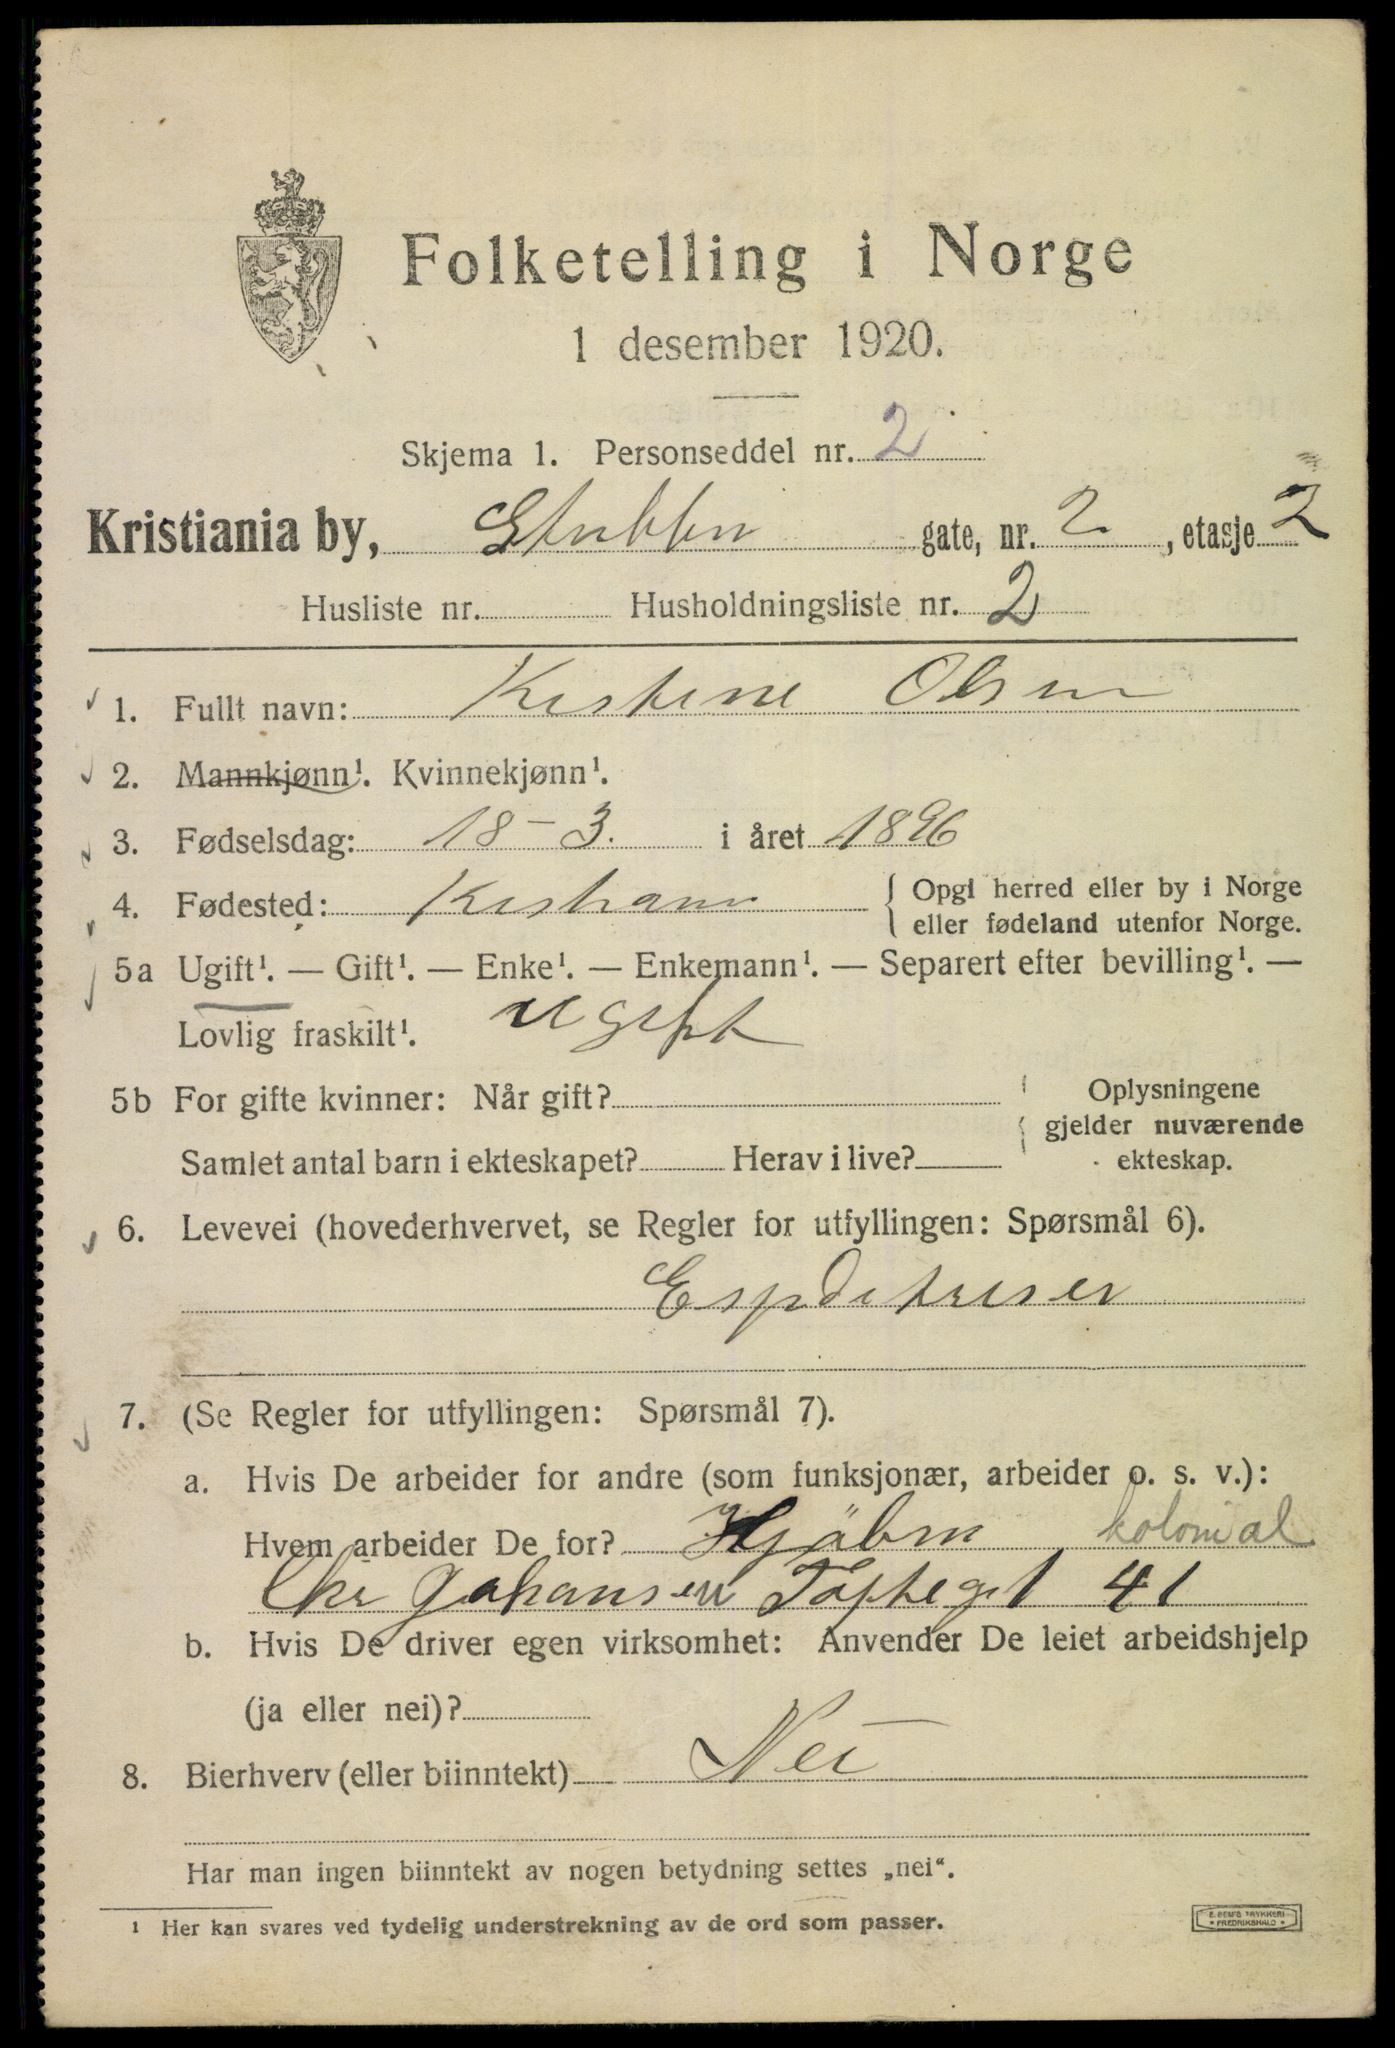 Folketelling i Norge
1 desember 1920.
Skjema 1. Personseddel nr. 2
Kristiania by, Stubben gate, nr. 2, etasje 2
Husliste nr. Husholdningsliste nr. 2
1. Fullt navn: Kristine Olsen
2. Mannkjønn¹. Kvinnekjønn¹.
3. Fødselsdag: 18-3. i året 1896
4. Fødested: Kristiania { Opgi herred eller by i Norge
eller fødeland utenfor Norge.
5a Ugift¹. — Gift¹. — Enke¹. — Enkemann¹. — Separert efter bevilling¹. —
Lovlig fraskilt¹. ugift
5b For gifte kvinner: Når gift? Oplysningene
gjelder nuværende
Samlet antal barn i ekteskapet? Herav i live? ekteskap.
6. Levevei (hovederhvervet, se Regler for utfyllingen: Spørsmål 6).
Espditriser
7. (Se Regler for utfyllingen: Spørsmål 7).
a. Hvis De arbeider for andre (som funksjonær, arbeider o. s. v.):
Hvem arbeider De for? Kjöbm kolonial
Chr Johansen Toftegt 41
b. Hvis De driver egen virksomhet: Anvender De leiet arbeidshjelp
(ja eller nei)?
8. Bierhverv (eller biinntekt) Nei
Har man ingen biinntekt av nogen betydning settes „nei“.
¹ Her kan svares ved tydelig understrekning av de ord som passer.
E. SEM'S TRYKKERI
* FREDRIKSHALD *